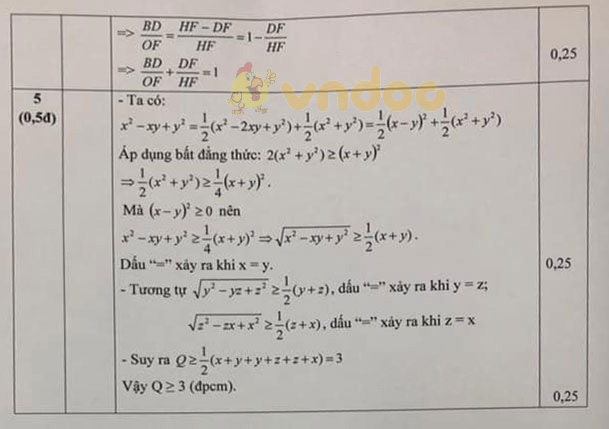 => BD/OF = (HF – DF)/HF = 1 – DF/HF
=> BD/OF + DF/HF = 1
0,25
vndoc
5
(0,5đ)
- Ta có:
x² – xy + y² = 1/2(x² – 2xy + y²) + 1/2(x² + y²) = 1/2(x – y)² + 1/2(x² + y²)
Áp dụng bất đẳng thức: 2(x² + y²) ≥ (x + y)²
⇒ 1/2(x² + y²) ≥ 1/4(x + y)².
Mà (x – y)² ≥ 0 nên
x² – xy + y² ≥ 1/4(x + y)² ⇒ √(x² – xy + y²) ≥ 1/2(x + y).
Dấu “=” xảy ra khi x = y.
0,25
- Tương tự √(y² – yz + z²) ≥ 1/2(y + z), dấu “=” xảy ra khi y = z;
√(z² – zx + x²) ≥ 1/2(z + x), dấu “=” xảy ra khi z = x
- Suy ra Q ≥ 1/2(x + y + y + z + z + x) = 3
Vậy Q ≥ 3 (đpcm).
0,25